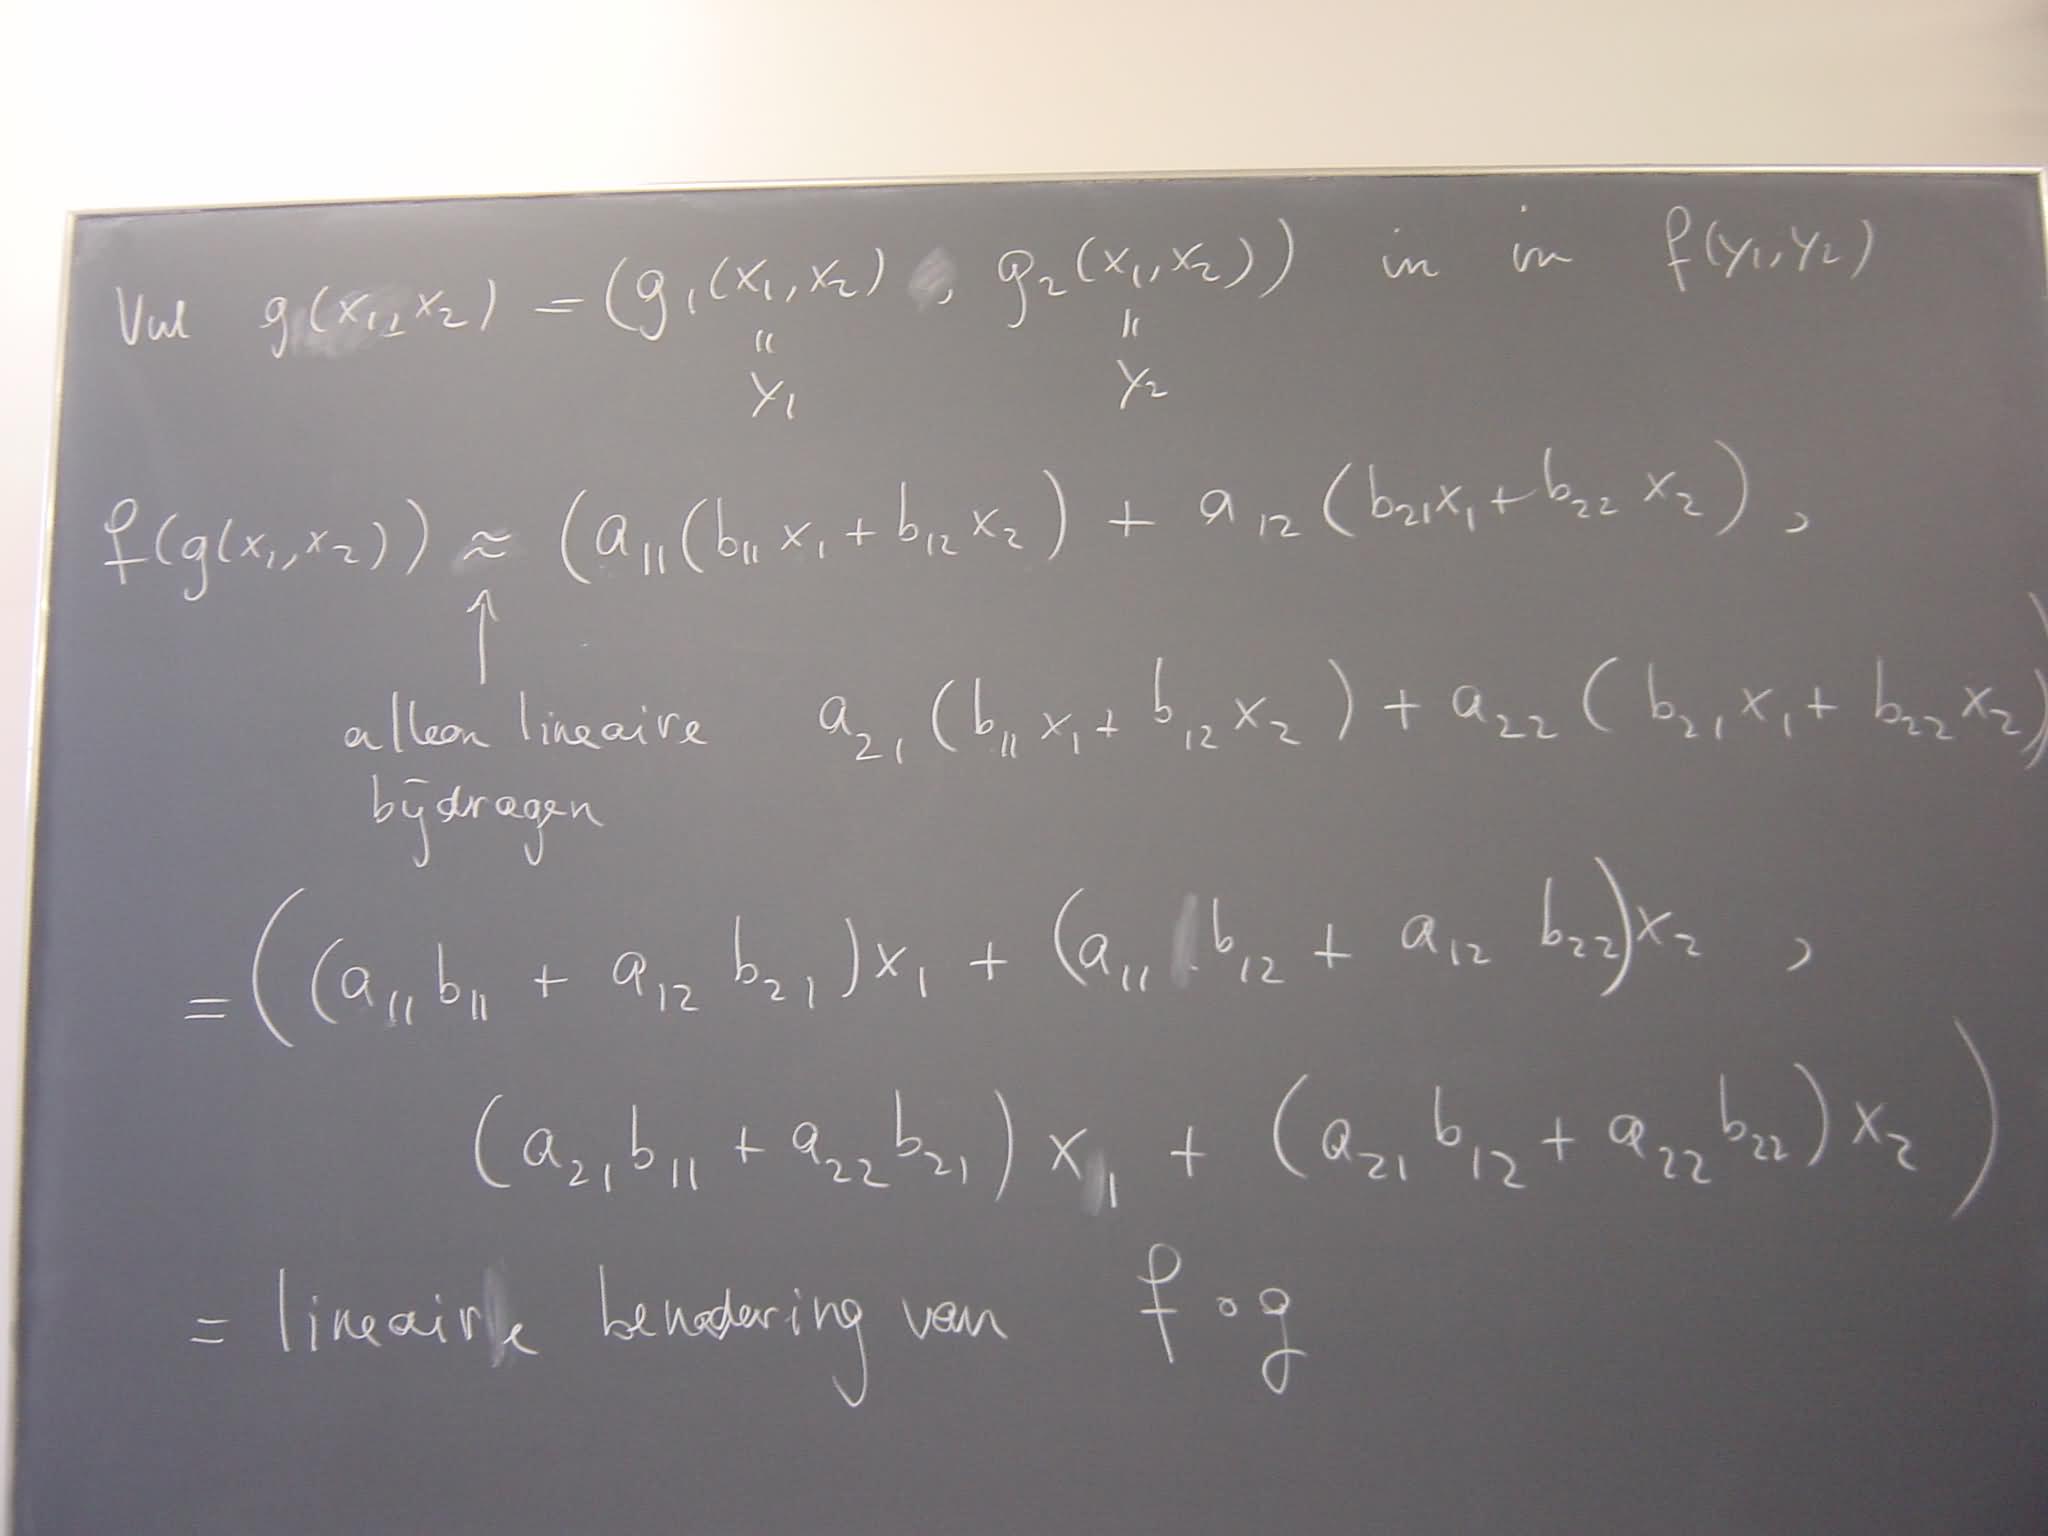 Vul g(x₁, x₂) = (g₁(x₁, x₂), g₂(x₁, x₂)) in in f(y₁, y₂)
" "
y₁ y₂
f(g(x₁, x₂)) ≈ (a₁₁(b₁₁ x₁ + b₁₂ x₂) + a₁₂ (b₂₁x₁ + b₂₂ x₂) ,
↑
alleen lineaire a₂₁ (b₁₁ x₁ + b₁₂ x₂) + a₂₂ (b₂₁ x₁ + b₂₂ x₂))
bijdragen
= ((a₁₁ b₁₁ + a₁₂ b₂₁)x₁ + (a₁₁ b₁₂ + a₁₂ b₂₂)x₂ ,
(a₂₁ b₁₁ + a₂₂ b₂₁) x₁ + (a₂₁ b₁₂ + a₂₂ b₂₂) x₂)
= lineaire benadering van f ∘ g